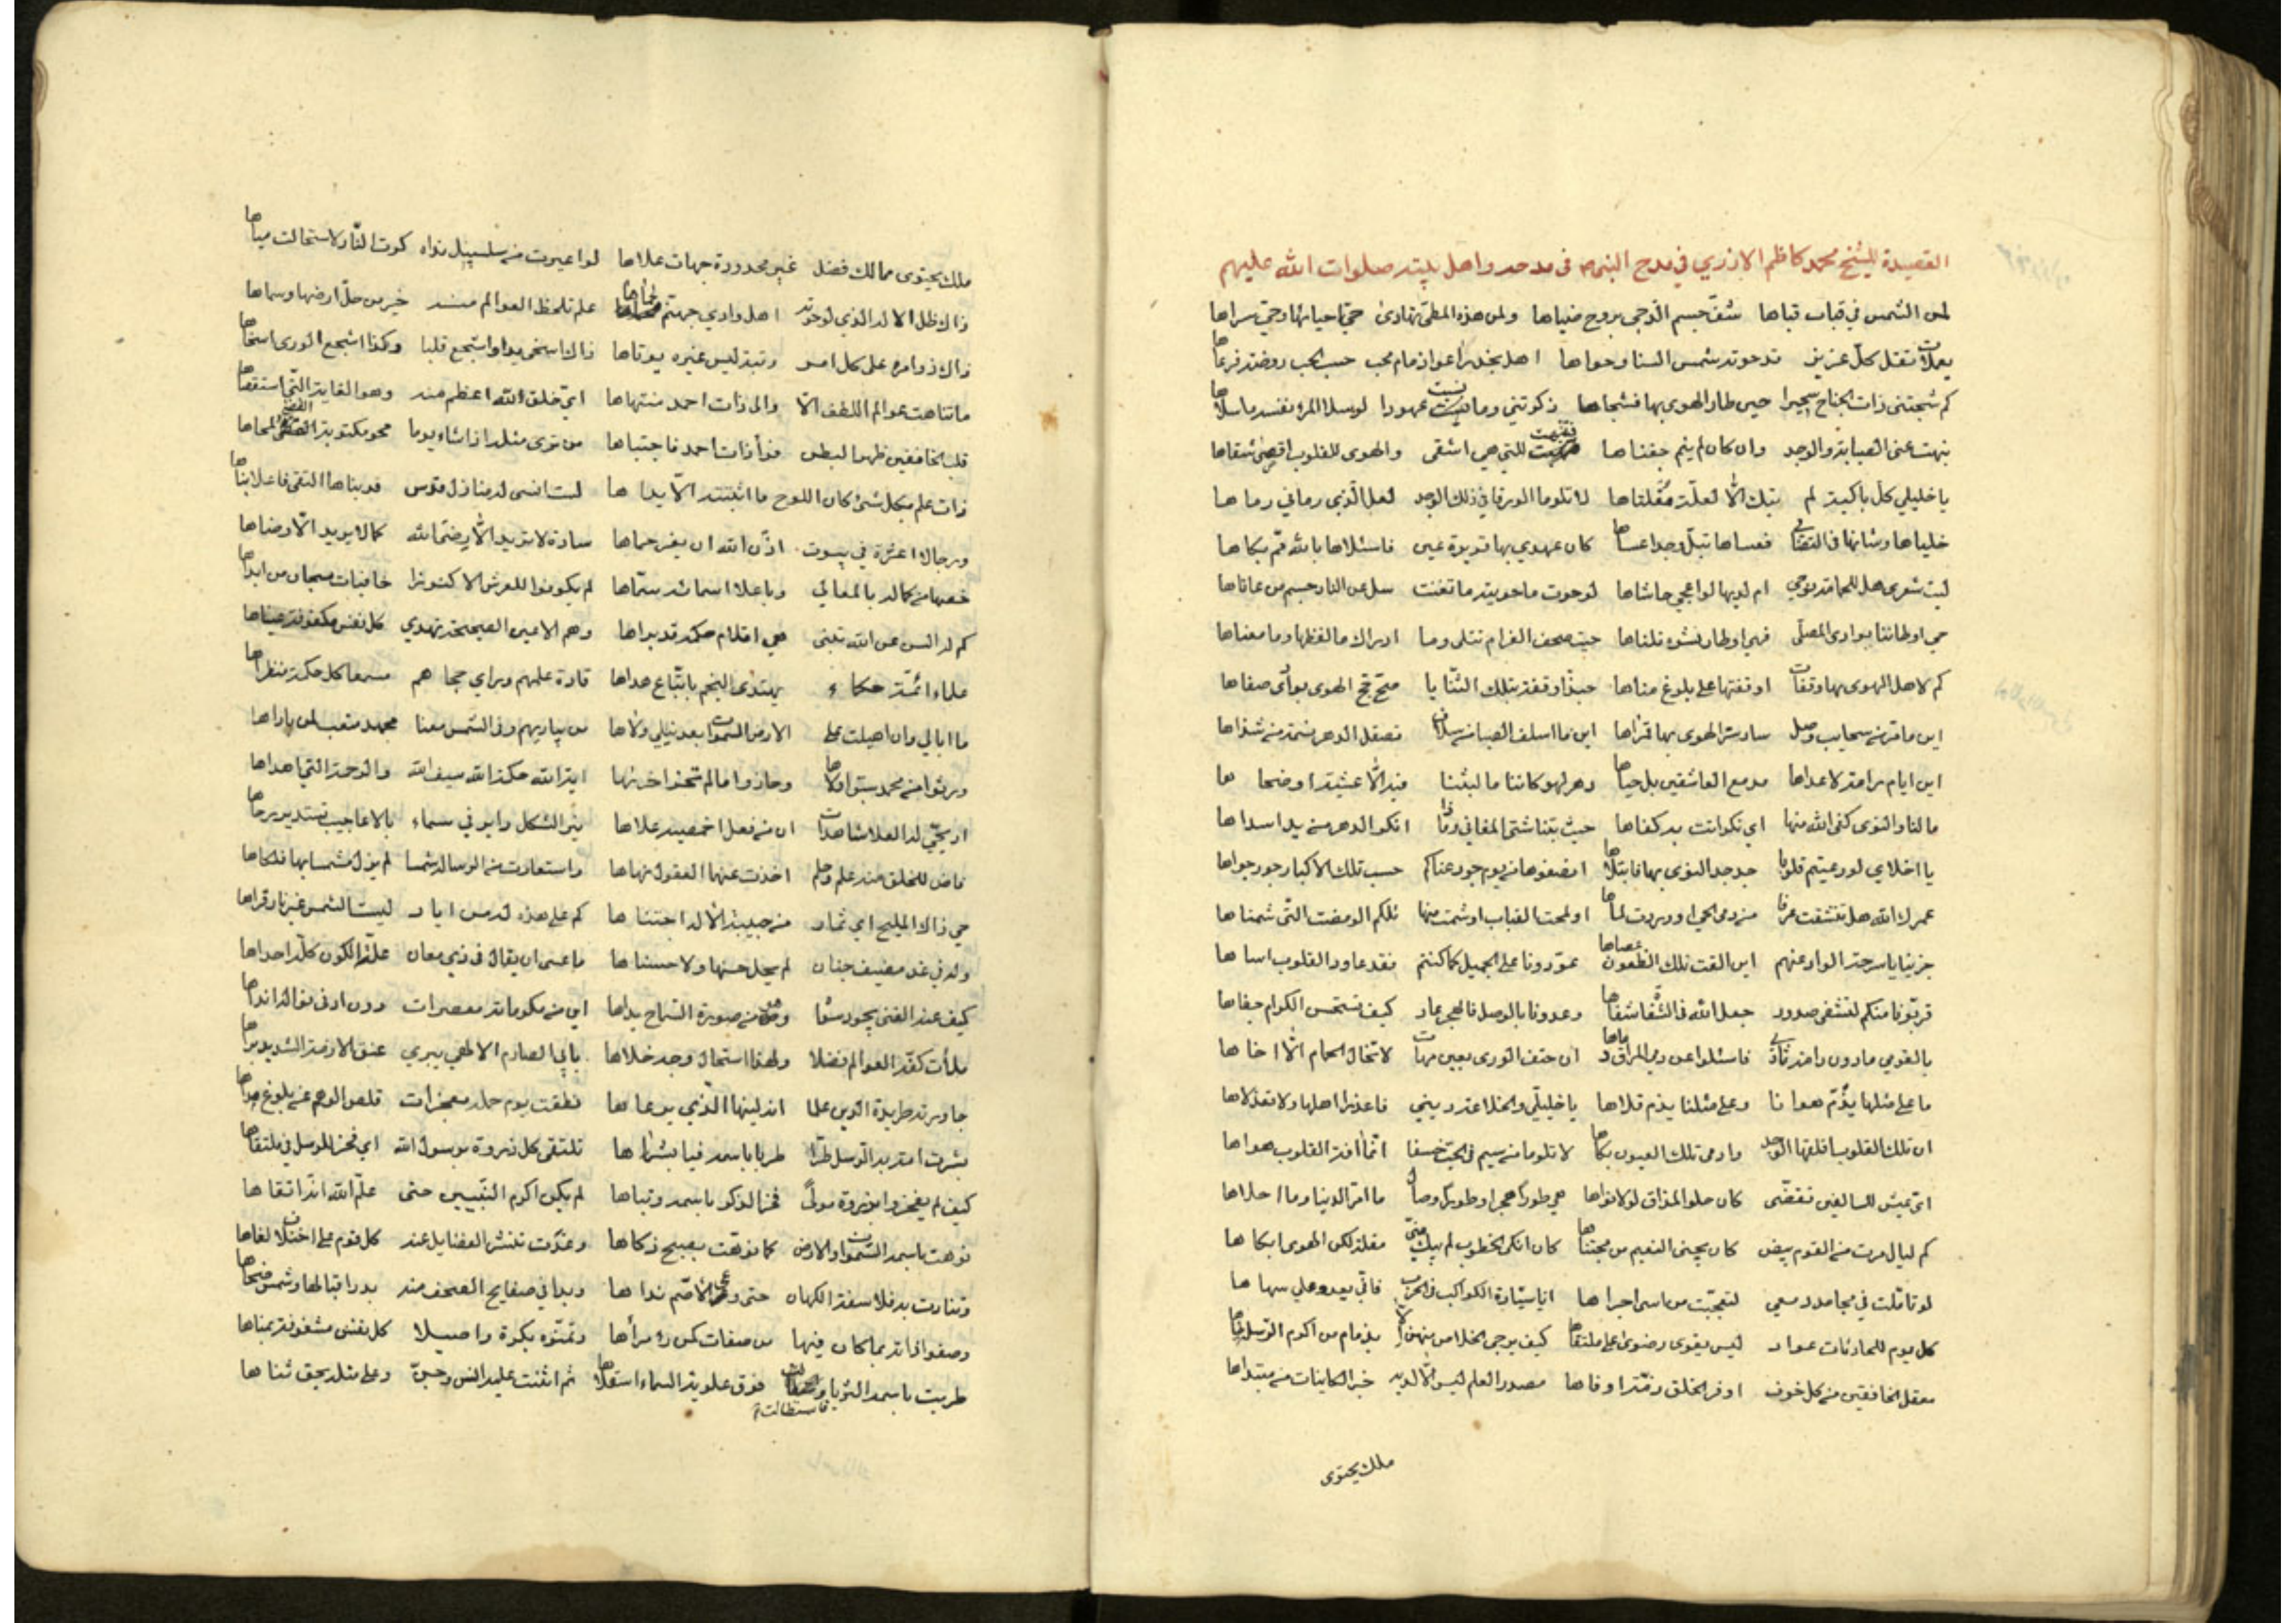 القصيدة للشيخ محمد كاظم الازري في مدح النبي في مدحه واهل بيته صلوات الله عليهم
لمن الشمس في قباب قباها شفّ جسم الدّجى بروح ضياها ولمن هذه المطيّ تهادى حيّ احيائها وحيّ سراها
يعملات تقل كلّ عزيز قد حوته شمس السنا وحواها اهل نجد راعوا ذمام محب حسب الحب روضة فرعاها
كم شجتني ذات الجناح سحيرا حين طار الهوى بها فشجاها ذكرتني وما نسيت عهودا لو سلا المرء نفسه ما سلاها
نبهت عيني الصبابة والوجد وان كان لم ينم جفناها فتنبهت للتي هي اشقى والهوى للقلوب اقصى شقاها
يا خليلي كل باكية لم تبك الّا لعلّة مقلتاها لا تلوما الورقا في ذلك الوجد لعل الّذي رماني رماها
خلياها وشانها فعساها تبلّ وجدا عساها كان عهدي بها قريرة عين فاسئلاها بالله ممّ بكاها
ليت شعري هل للحمامة نوحي ام لديها لواعجي حاشاها لو حوت ما حويته ما تغنت سل عن النار جسم من عاناها
حي اوطاننا بوادي المصلّى فهي اوطار نشوة نلناها حيث صحف الغرام تتلى وما ادراك ما لفظها وما معناها
كم لاهل الهوى بها وقفات اوقفتها على بلوغ مناها حبذا وقفة بتلك الثنايا صحّ حجّ الهوى بوادي صفاها
اين ايام رامة لا عداها مدمع العاشقين بل حياها دهر لهو كاننا ما لبثنا فيه الّا عشية او ضحاها
ما لنا والنوى كفى الله منها اي نكر اتت به كفاها حيث بتنا شتى المغاني وذا انكر الدهر من يد اسداها
يا اخلاي لو رعيتم قلوبا جد جد النوى بها فابتلاها انصفوها من يوم جور عناكم حسب تلك الاكباد جور جواها
عمرك الله هل تنشقت عرفا من دمى الحي او وردت لماها او لمحت القباب او شمت منها تلكم الومضة التي شمناها
جزينا يا سرحة الواد عنهم اين القت تلك الظعون عصاها عودونا على الجميل كما كنتم فقد عاود القلوب اساها
قربونا منكم لتشفى صدور جعل الله في الشفا شفاها وعدونا بالوصل فالهجر عار كيف تستحسن الكرام جفاها
ما على مثلها يذم هوانا وعلى مثلنا يذم قلاها يا خليلي والخلاعة ديني فاعذرا اهلها ولا تعذلاها
ان تلك القلوب اقلقها الوجد وادمى تلك العيون بكاها لا تلوما من سيم في الحبّ خسفا انّما آفة القلوب هواها
ايّ عيش للسالفين تقضى كان حلو المذاق لولا نواها هي طورا هجرا وطورا وصالا ما امرّ الدنيا وما احلاها
كم ليال مرت من القوم بيض كان يجني النعيم من مجتناها كان انكى الخطوب لم يبك منّي مقلة لكن الهوى ابكاها
لو تاملت في مجامد دمعي لتعجبت من اسى اجراها انا سيارة الكواكب في الحرب فانّى يعدو علي سهاها
كل يوم للحادثات عواد ليس يقوى رضوى على ملتقاها كيف يرجى الخلاص منهن الّا بذمام من اكرم الرّسل طه
معقل الخائفين من كل خوف اوفر الخلق ذمّة اوفاها مصدر العلم ليس الّا لديه خبر الكاينات من مبتداها
ملك يحتوي
ملك يحتوي ممالك فضل غير محدودة جهات علاها لو اعيرت من سلسبيل نداه كرة النّار لاستحالت مياها
ذاك ظل الاله الذي لو حوته اهل وادي جهنم لحماها علم تلحظ العوالم منه خير من حلّ ارضها وسماها
ذاك ذو امرة على كل امر رتبة ليس غيره يؤتاها ذاك اسخى يدا واشجع قلبا وكذا اشجع الورى اسخاها
ما تناهت عوالم اللطف الّا والى ذات احمد منتهاها ايّ خلق الله اعظم منه وهو الغاية التي استقصاها
قلب الخافقين ظهرا لبطن فرأى ذات احمد فاجتباها من ترى مثله اذا شاء يوما محو مكتوبة القضاء محاها
ذات علم بكل شيء كان اللوح ما اثبتته الّا يداها لست انسى له منازل قدس قد بناها التقى فاعلا بناها
ورجالا اعزة في بيوت اذن الله ان يعز حماها سادة لا تريد الّا رضى الله كما لا يريد الّا رضاها
خصها من كماله بالمعالي وباعلا اسمائه سمّاها لم يكونوا للعرش الا كنوزا خافيات سبحان من ابداها
كم له السن عن الله تنبي هي اقلام حكمة قد براها وهم الاعين الصحيحة تهدي كل نفس مكفوفة عيناها
علماء ائمّة حكماء يهتدي النجم باتّباع هداها قادة علمهم وراي حجاهم مسمعا كل حكمة منظراها
ما ابالي ولو اهيلت على الارض السموات بعد نيلي ولاها من يباريهم وفي الشمس معنى مجهد متعب لمن باراها
ورثوا من محمد سبق اولاها وحازوا ما لم تحز اخراها اية الله حكمة الله سيف الله والرحمة التي اهداها
اريحيّ له العلا شاهدات ان من نعل اخمصيه علاها نير الشكل دائر في سماء بالاعاجيب تستدير رحاها
فاض للخلق منه علم وحلم اخذت عنهما العقول نهاها واستعارت منه الرسالة شمسا لم يزل مشمسا بها فلكاها
حي ذاك المليح اي ثمار من حبيبه الاله اجتناها كم على هذه له من اياد ليست الشمس غير نار قراها
وله في غد مضيف جنان لم يحل حسنها ولا حسناها ما عسى ان يقال في ذي معال علّة الكون كلّه احداها
كيف عنه الغنى بجود سواه وهو من صورة السماح يداها اين من مكرماته معصرات دون ادنى نواله انداها
ملأت كفّه العوالم فضلا ولهذا استحال وجه خلاها بابي الصارم الالهي يبري عنق الازمة الشديد براها
جاورته طريدة الدين علما انه ليثها الّذي يرعاها نطقت يوم حمله معجزات قصر الوهم عن بلوغ مداها
بشرت امّه به الرّسل طرّا طربا باسمه فيا بشراها تلتقي كل ذروة برسول الله اي فخر للرسل في ملتقاها
كيف لم يفخروا بدورة مولى فخر الذكر باسمه وتباهى لم يكن اكرم النّبيين حتى علم الله انّه اتقاها
نوهت باسمه السموات والارض كما نوهت بصبح ذكاها وغدت تنشر الفضايل عنه كل قوم على اختلاف لغاها
وتنادت به فلاسفة الكهان حتى وعى الاصّم نداها وبدا في صفايح الصحف منه بدر اقبالها وشمس ضحاها
وصفوا ذاته بما كان فيها من صفات كمن رآ مرآها وتمنّوه بكرة واصيلا كل نفس مشغوفة بمناها
طربت باسمه الثريا فاستطالت فوق علوية السماء استعلاها ثم اثنت عليه انس وجنّ وعلى مثله يحق ثناها